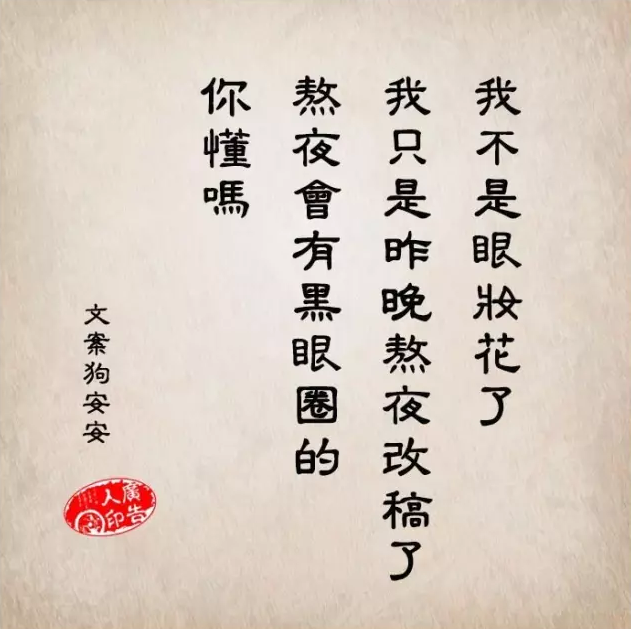 我不是眼妝花了
我只是昨晚熬夜改稿了
熬夜會有黑眼圈的
你懂嗎
文案狗安安
廣告
人印